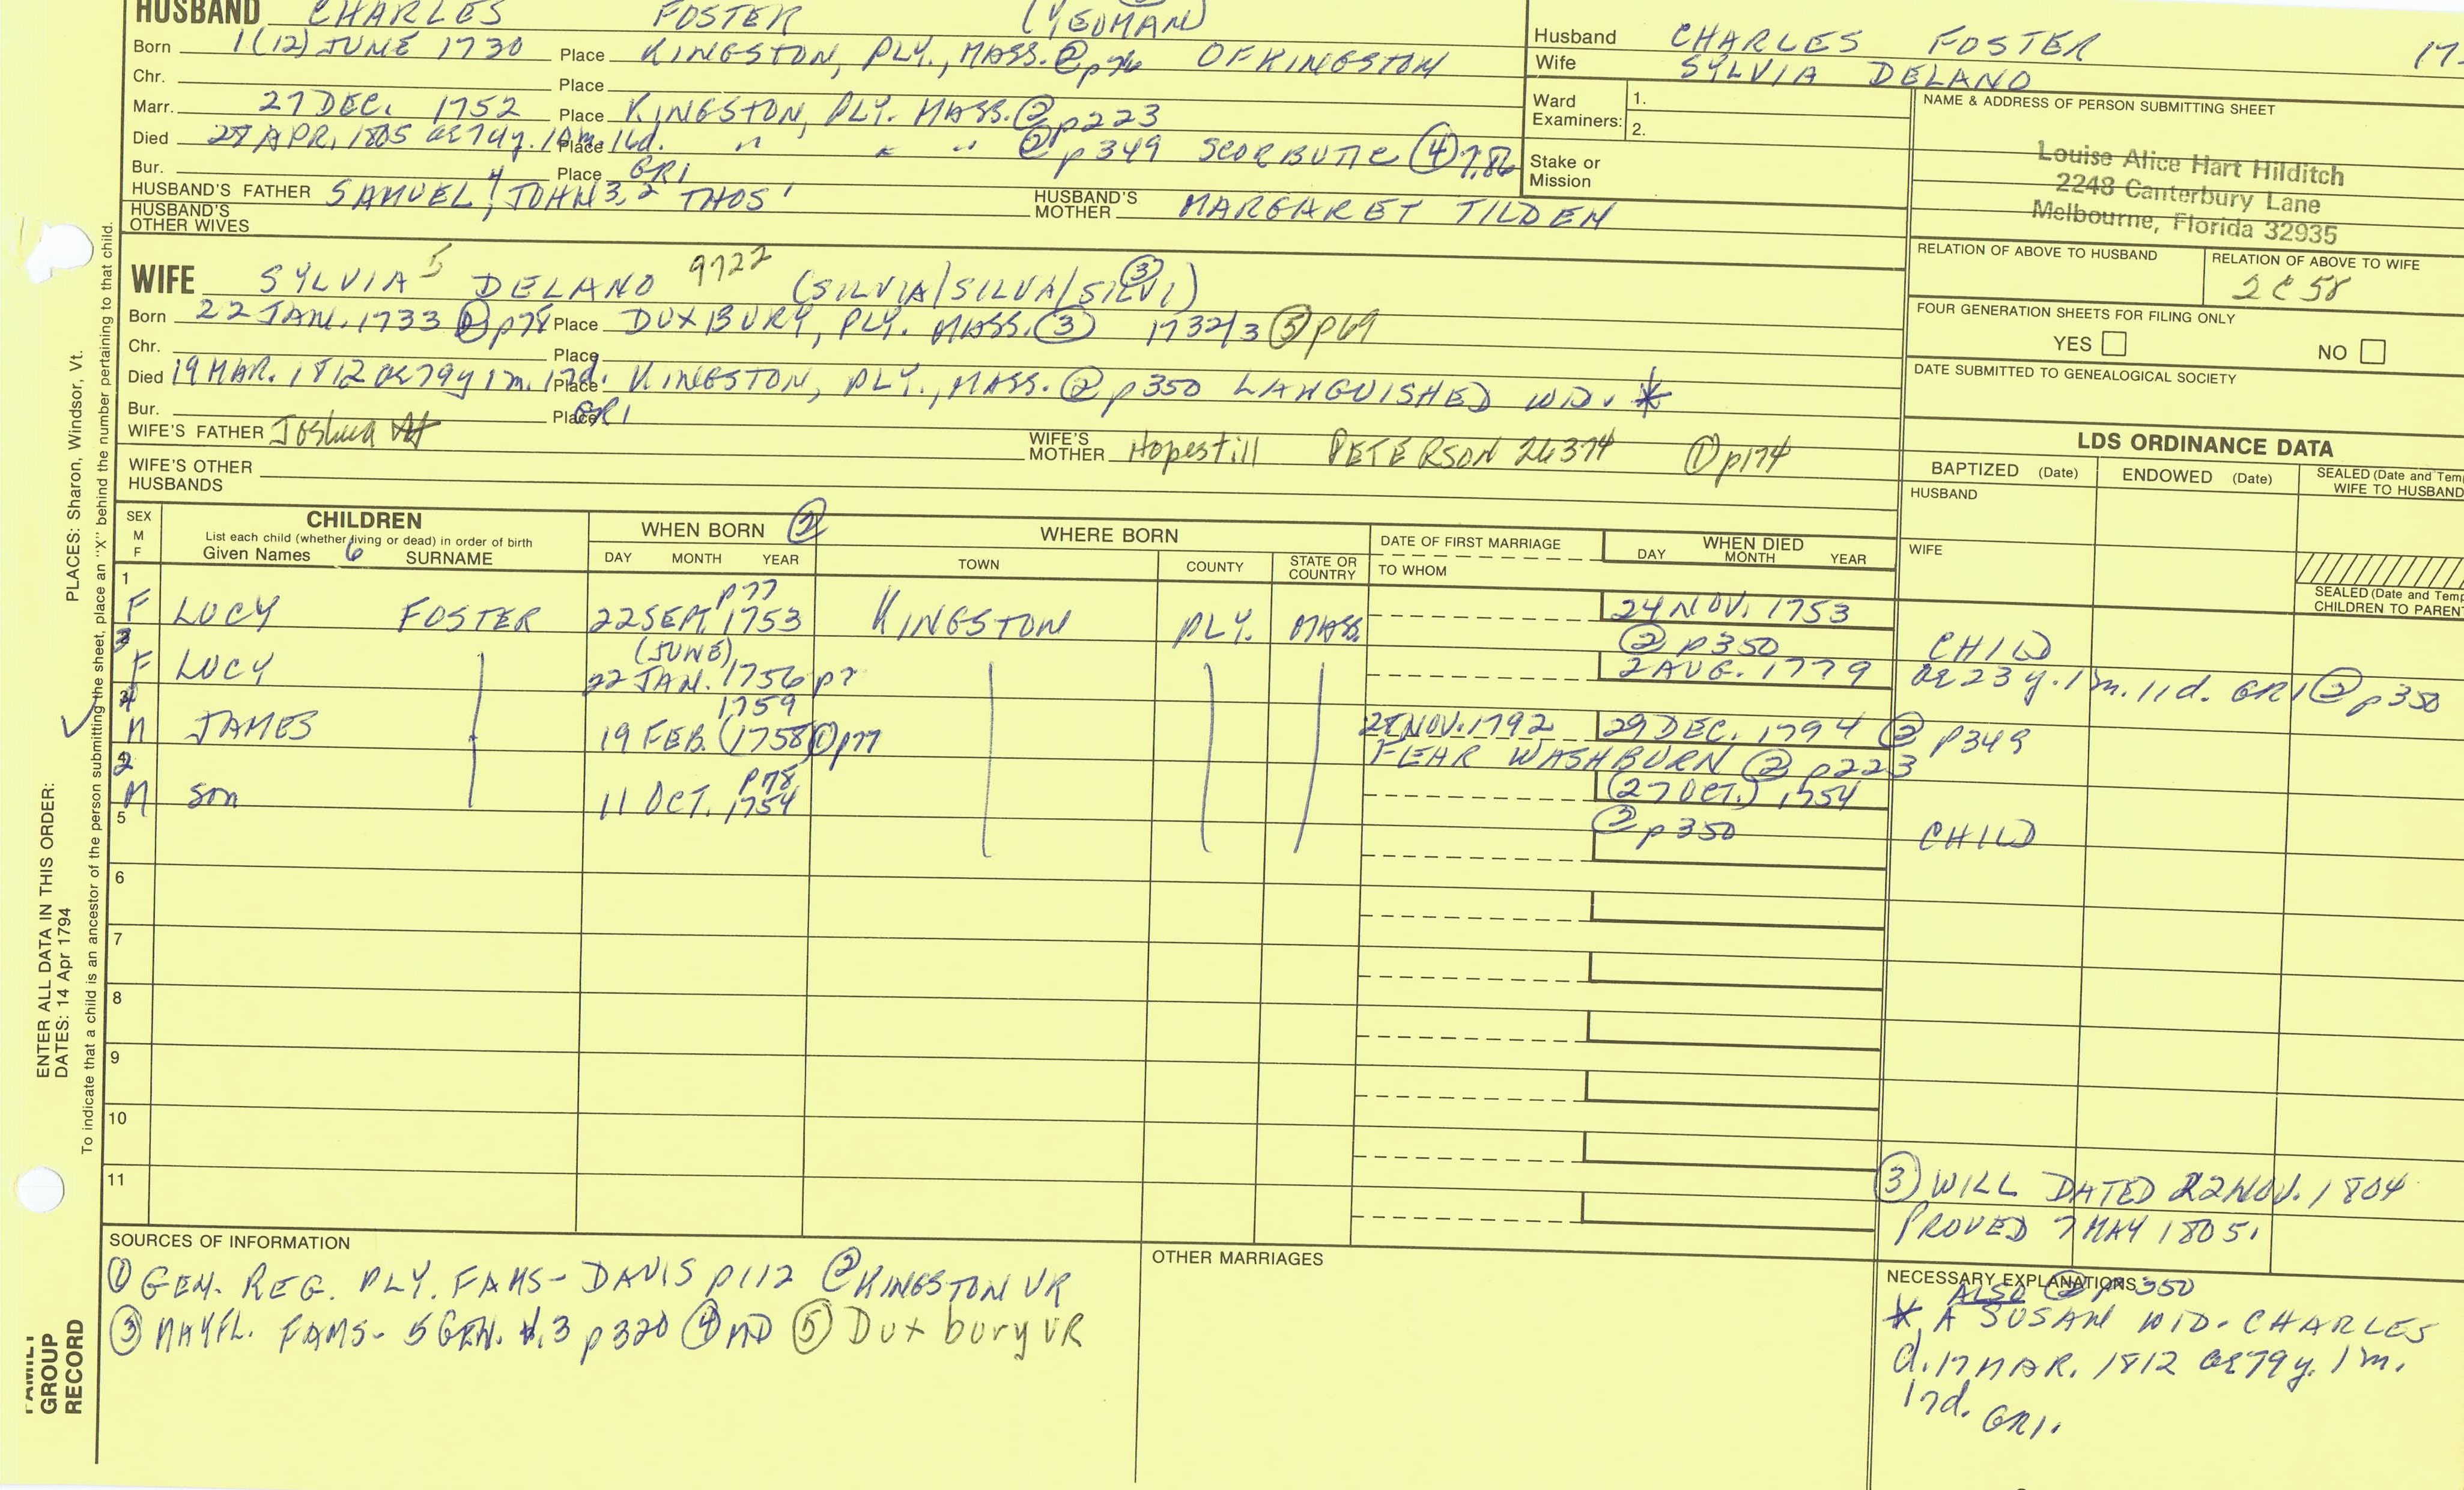 HUSBAND CHARLES FOSTER (YEOMAN)
Born 1(12) JUNE 1730 Place KINGSTON, PLY., MASS. ② p76 OF KINGSTON
Chr. Place
Marr. 27 DEC. 1752 Place KINGSTON, PLY. MASS. ② p223
Died APR. 1805 ae 74y. 10m. 16d. Place " " " ② p349 SCORBUTIC ④ 7.86
Bur. Place GR1
HUSBAND'S FATHER SAMUEL 4, JOHN 3, 2 THOS 1 HUSBAND'S MOTHER MARGARET TILDEN
HUSBAND'S OTHER WIVES
WIFE SYLVIA 5 DELANO 9722 (SILVIA/SILVA/SILVI) ③
Born 22 JAN. 1733 p78 Place DUXBURY, PLY. MASS. ③ 1732/3 ⑤ p69
Chr. Place
Died 19 MAR. 1812 ae 79y 1m. 17d. Place KINGSTON, PLY., MASS. ② p350 LANGUISHED WD. *
Bur. Place GR1
WIFE'S FATHER Joshua WIFE'S MOTHER Hopestill PETERSON 26374 ① p174
WIFE'S OTHER HUSBANDS
Husband CHARLES FOSTER 17
Wife SYLVIA DELANO
Ward Examiners: 1.
2.
Stake or Mission
NAME & ADDRESS OF PERSON SUBMITTING SHEET
Louise Alice Hart Hilditch
2248 Canterbury Lane
Melbourne, Florida 32935
RELATION OF ABOVE TO HUSBAND RELATION OF ABOVE TO WIFE
2C5R
FOUR GENERATION SHEETS FOR FILING ONLY
YES NO
DATE SUBMITTED TO GENEALOGICAL SOCIETY
LDS ORDINANCE DATA
BAPTIZED (Date) ENDOWED (Date) SEALED (Date and Tem
WIFE TO HUSBAND
HUSBAND
WIFE
SEALED (Date and Temp
CHILDREN TO PAREN
SEX M F CHILDREN WHEN BORN ② WHERE BORN DATE OF FIRST MARRIAGE WHEN DIED
List each child (whether living or dead) in order of birth
Given Names 6 SURNAME DAY MONTH YEAR TOWN COUNTY STATE OR COUNTRY TO WHOM DAY MONTH YEAR
1 p77
F LUCY FOSTER 22 SEPT. 1753 KINGSTON PLY. MASS. 24 NOV. 1753
② p350 CHILD
3 (JUNE)
F LUCY 22 JAN. 1756 p7 2 AUG. 1779 ae 23 y. 1m. 11d. GR1 ② p350
4 1759
M JAMES 19 FEB. (1758) ① p77 NOV. 1792 29 DEC. 1794 ② p349
FEAR WASHBURN ② p223
2 p78
M son 11 OCT. 1754 (27 OCT.) 1754
② p350 CHILD
5
6
7
8
9
10
11
③ WILL DATED 22 NOV. 1804
PROVED 7 MAY 1805.
SOURCES OF INFORMATION
① GEN. REG. PLY. FAMS- DAVIS p112 ② KINGSTON VR
③ MAYFL. FAMS- 5 GEN. v.3 p320 ④ MD ⑤ Duxbury VR
OTHER MARRIAGES
NECESSARY EXPLANATIONS
ALSO ② p350
* A SUSAN WID. CHARLES
d. 17 MAR. 1812 ae 79y. 1m.
17d. GR1.
PLACES: Sharon, Windsor, Vt.
ENTER ALL DATA IN THIS ORDER:
DATES: 14 Apr 1794
To indicate that a child is an ancestor of the person submitting the sheet, place an "X" behind the number pertaining to that child.
FAMILY
GROUP
RECORD